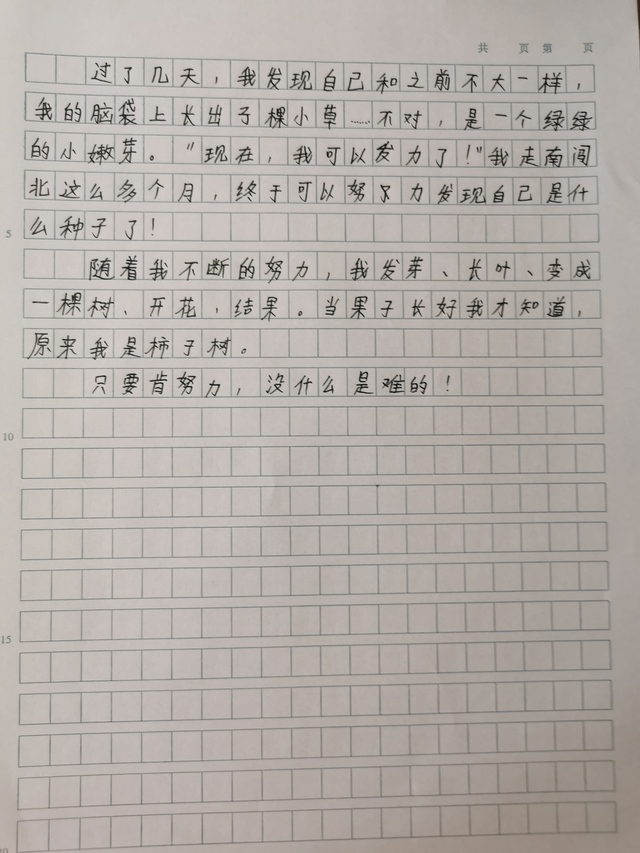 共 页 第 页
过了几天，我发现自己和之前不大一样，
我的脑袋上长出了棵小草……不对，是一个绿绿
的小嫩芽。“现在，我可以发力了！”我走南闯
北这么多个月，终于可以努力发现自己是什
5
么种子了！
随着我不断的努力，我发芽、长叶、变成
一棵树、开花，结果。当果子长好我才知道，
原来我是柿子树。
只要肯努力，没什么是难的！
10
15